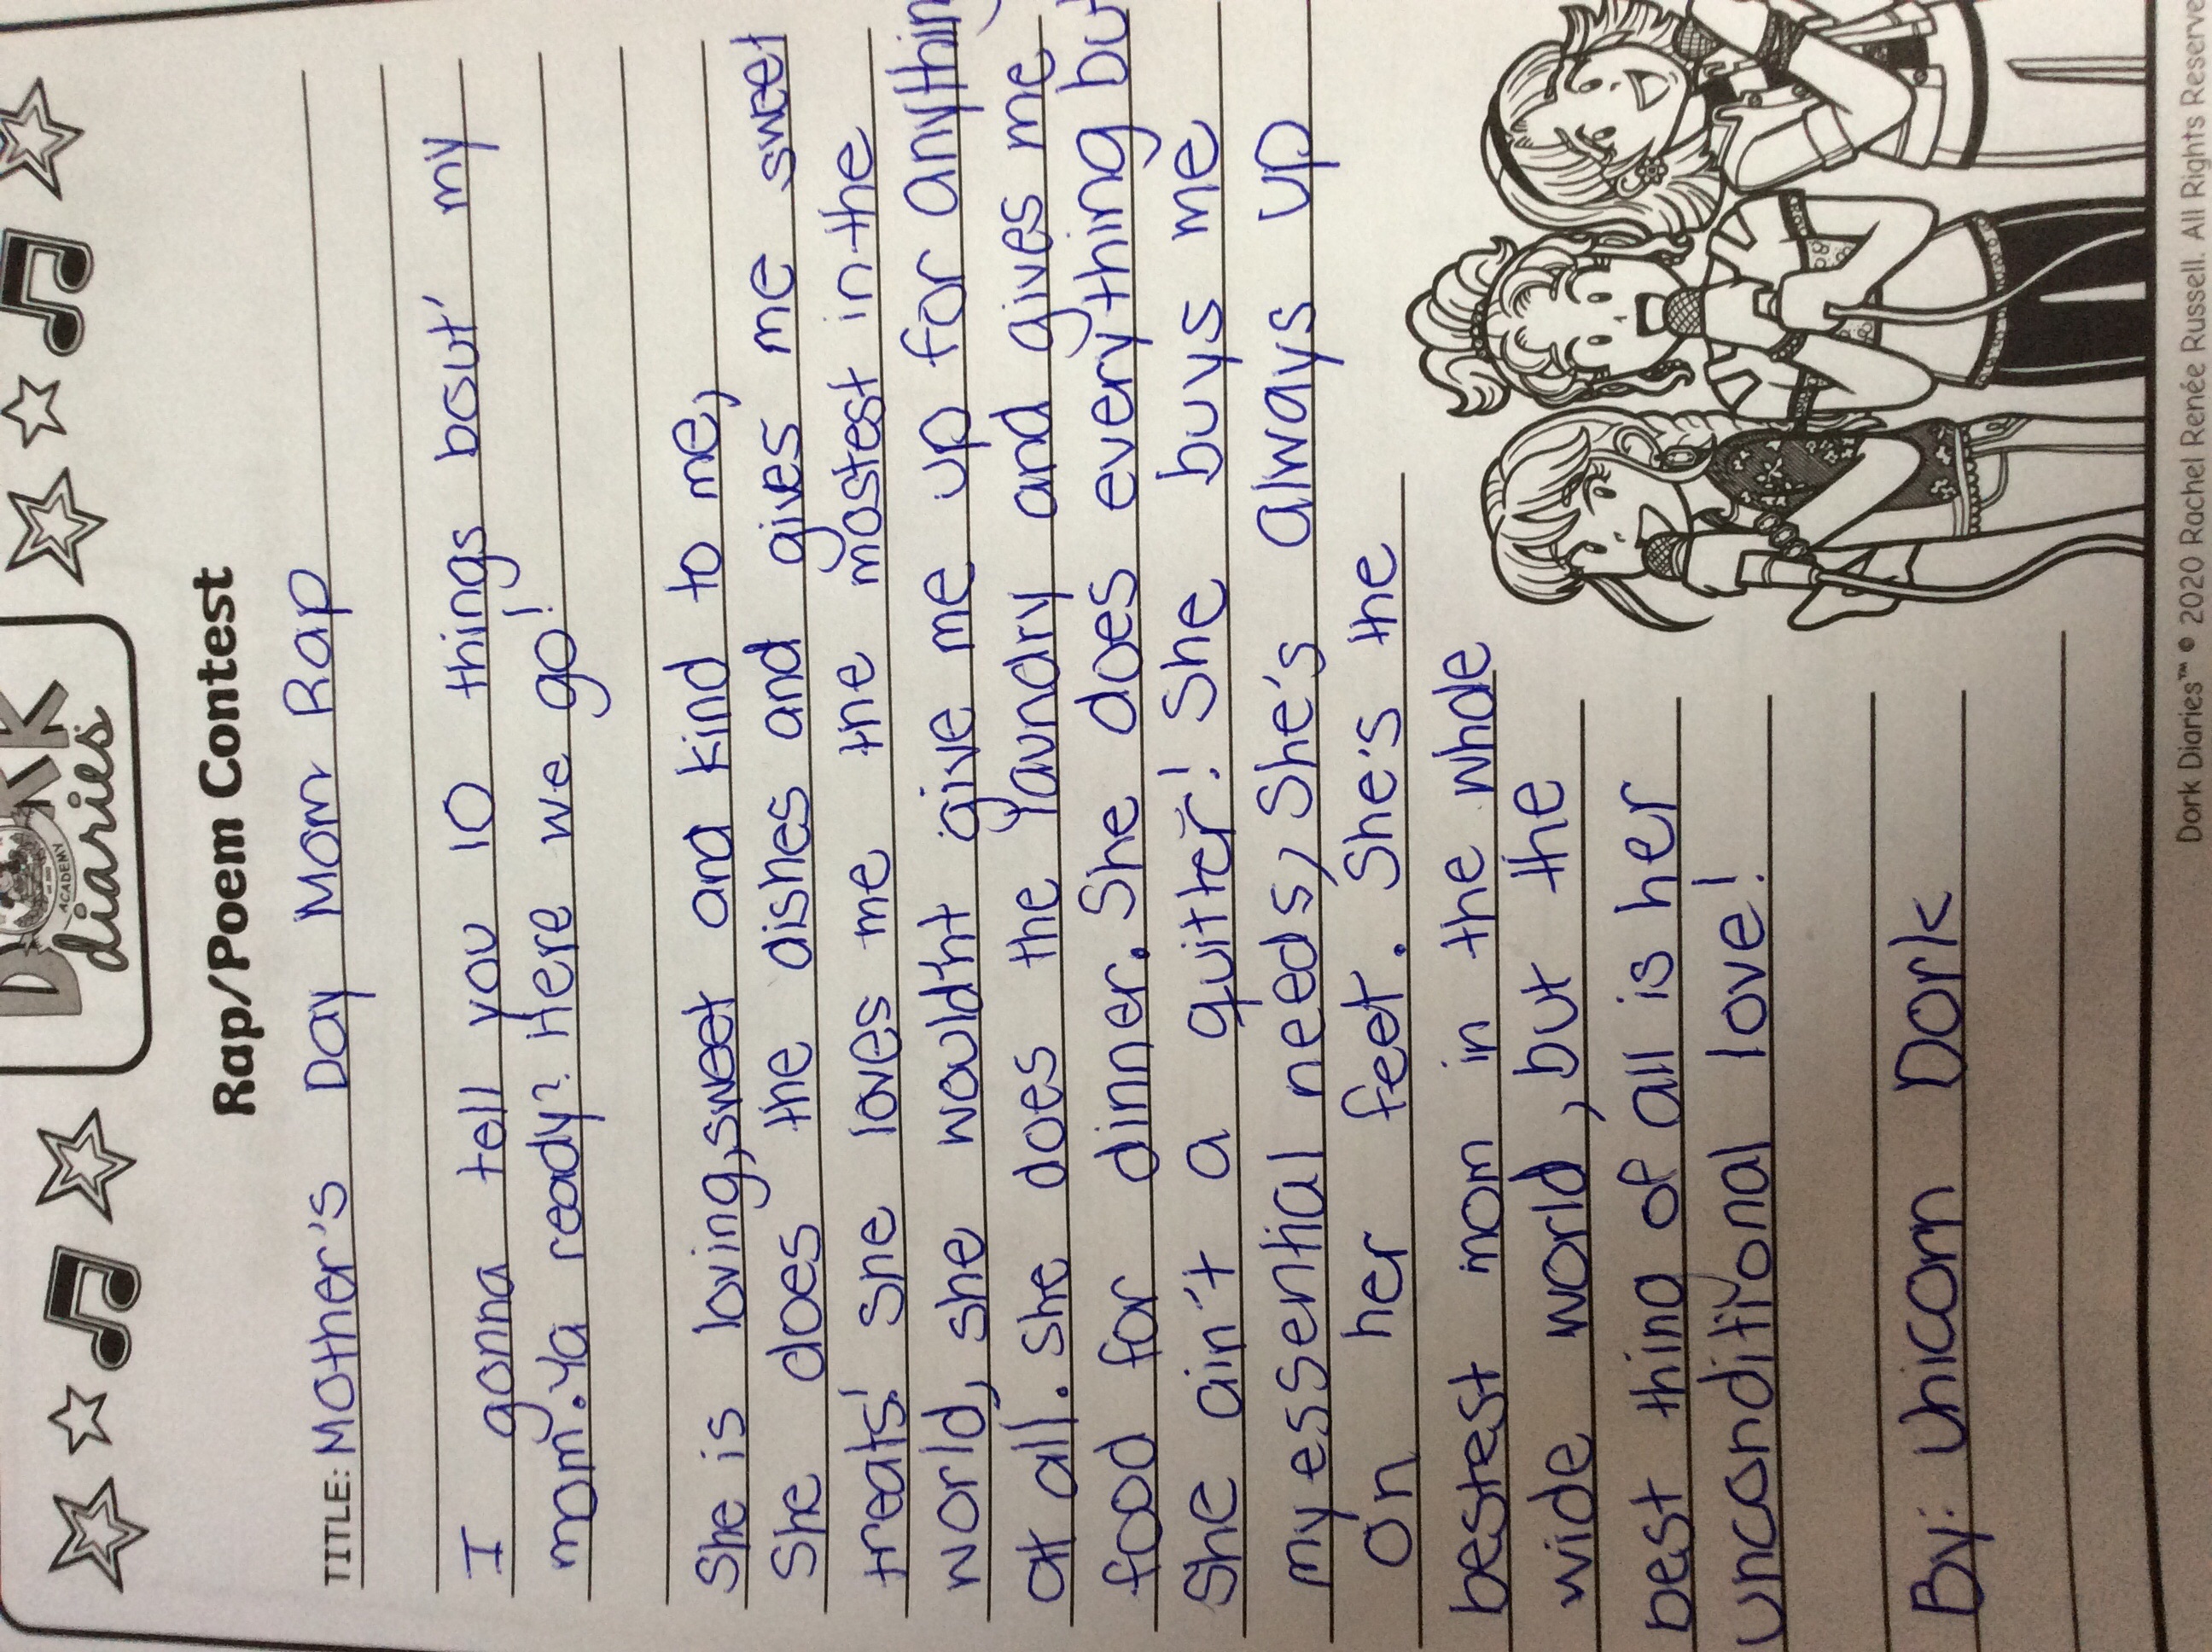 DORK
diaries
ACADEMY
Rap/Poem Contest
TITLE: Mother's Day Mom Rap
I gonna tell you 10 things bout' my
mom. Ya ready? Here we go!
She is loving, sweet and kind to me,
She does the dishes and gives me sweet
treats! She loves me the mostest in the
world, she wouldn't give me up for anything
at all. She does the laundry and gives me
food for dinner. She does everything but
She ain't a quitter! She buys me
my essential needs, She's always up
on her feet. She's the
bestest mom in the whole
wide world, but the
best thing of all is her
unconditional love!
By: Unicorn Dork
Dork Diaries™ © 2020 Rachel Renée Russell. All Rights Reserve